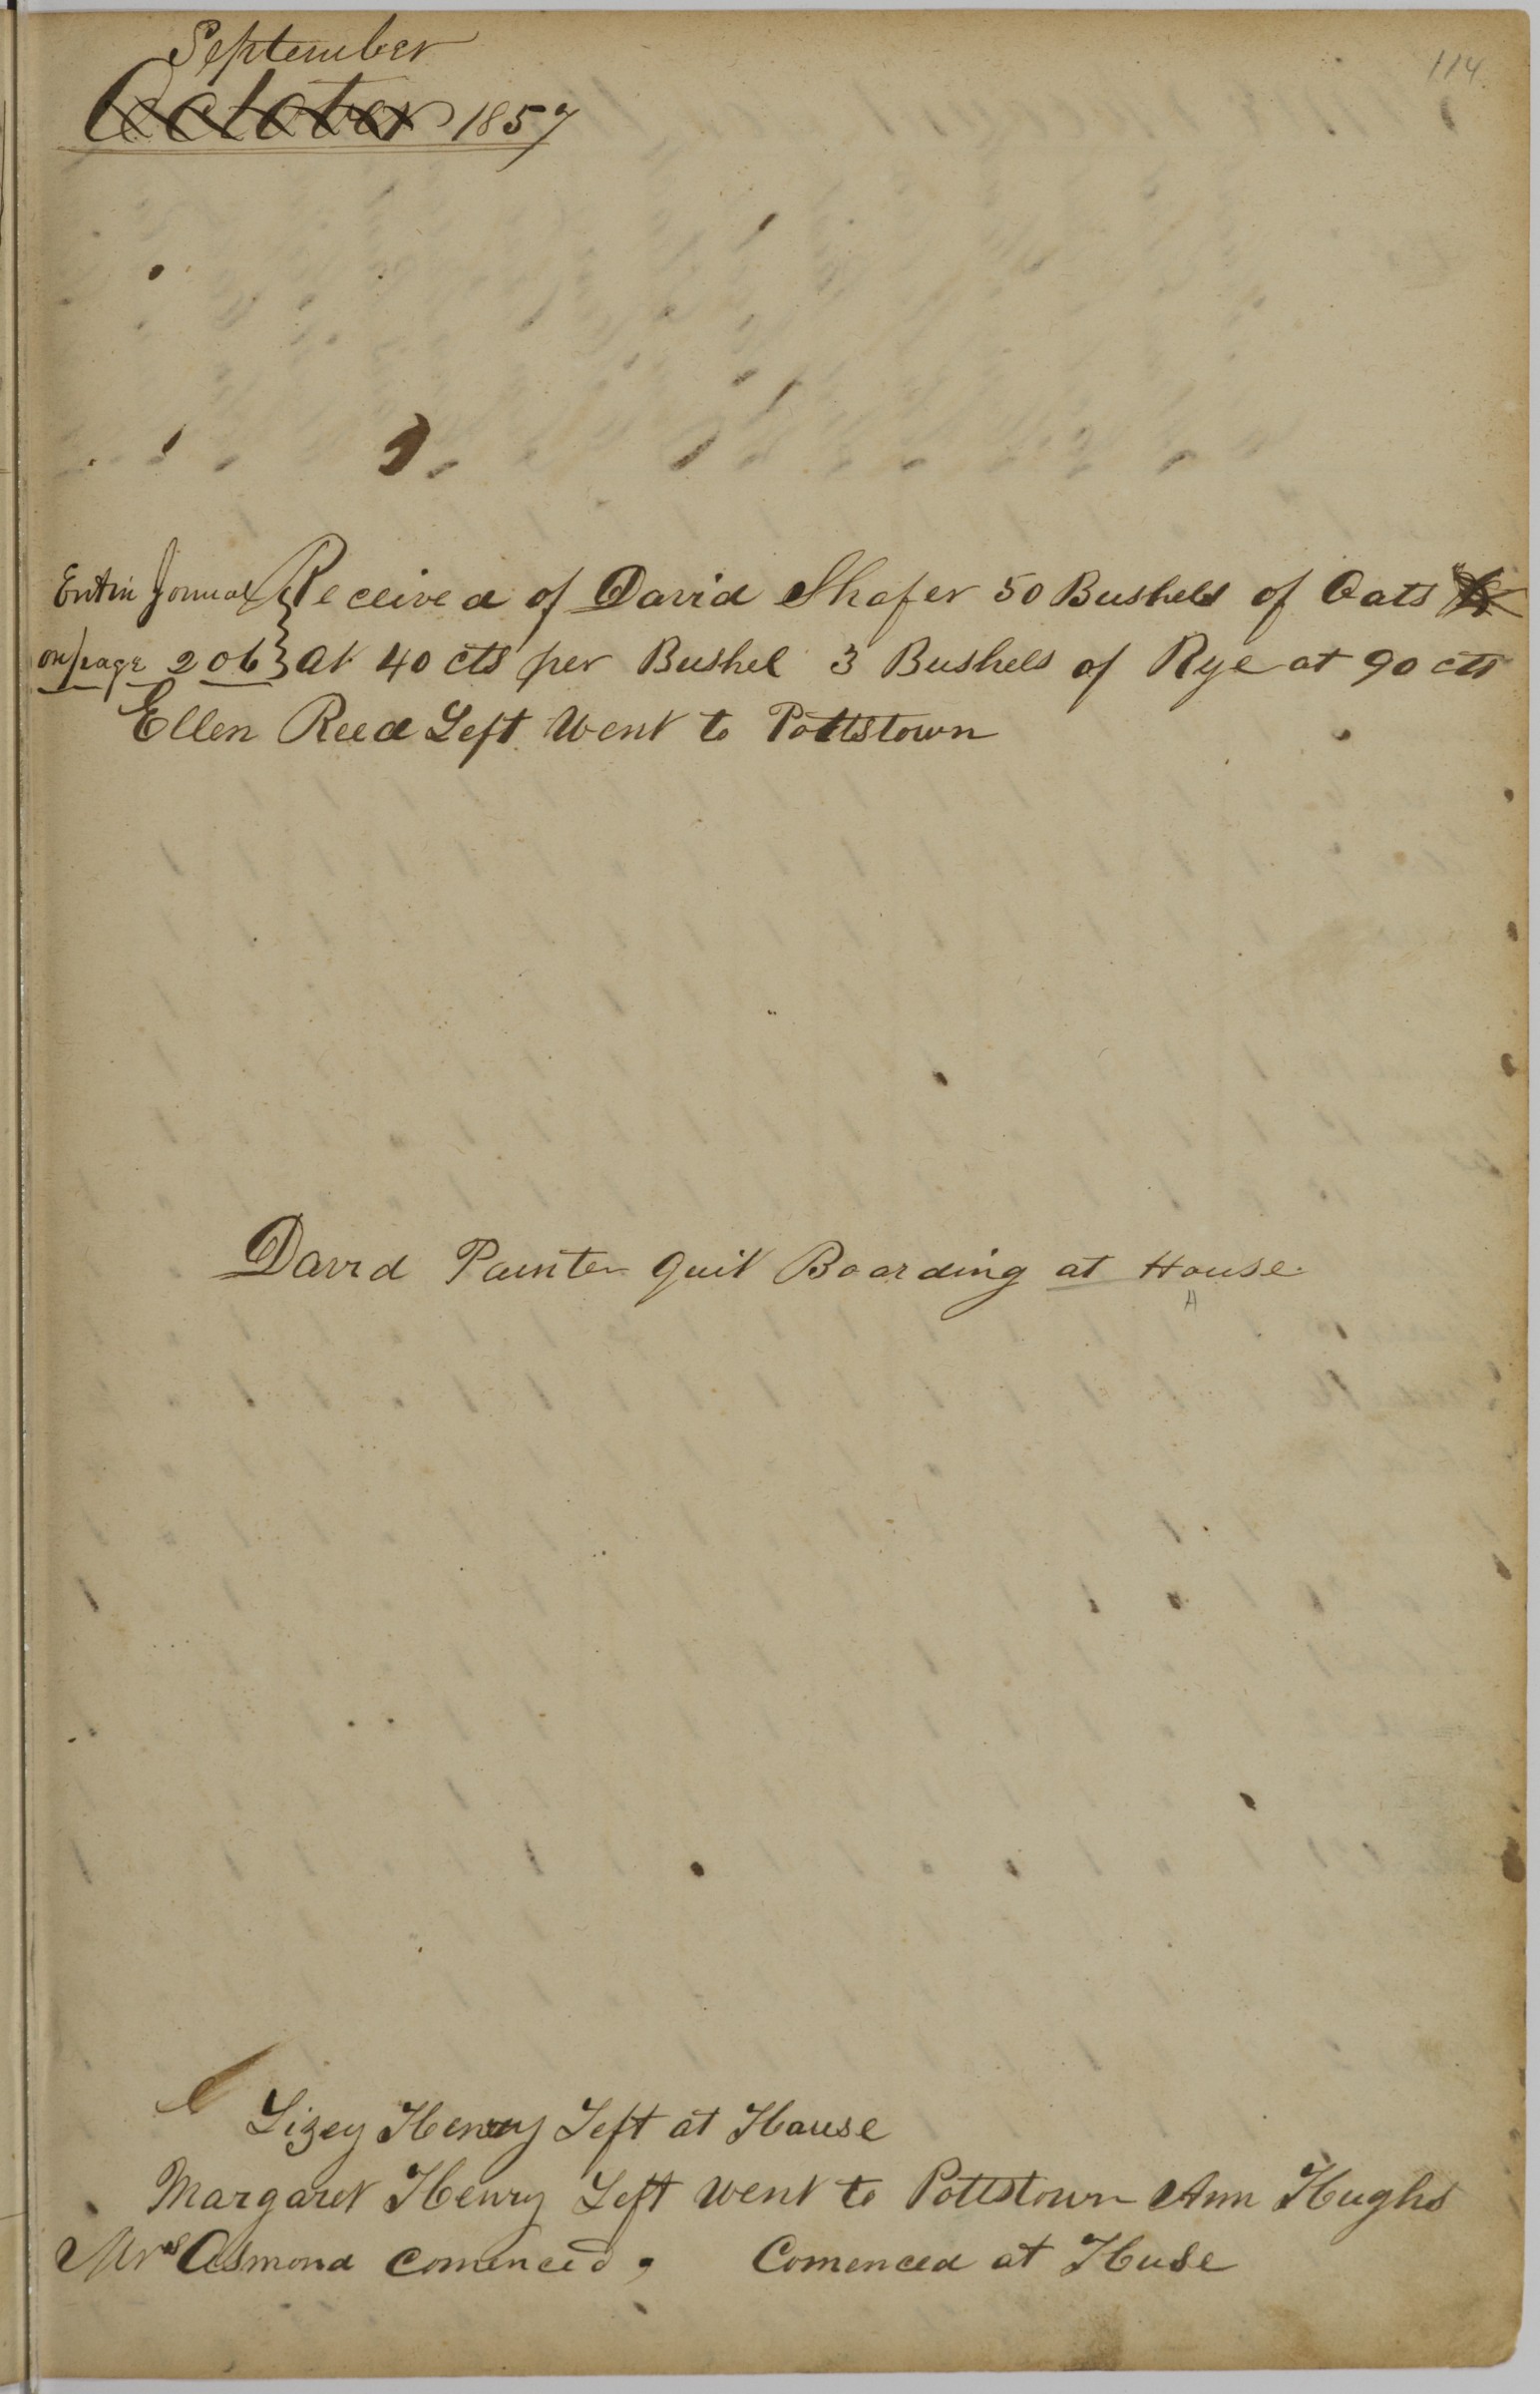 114
September
October 1857
Ent in Jornal Received of David Shafer 50 Bushels of Oats
on page 206 at 40 cts per Bushel 3 Bushels of Rye at 90 cts
Ellen Reed Left Went to Pottstown
David Painter quit Boarding at House
Lizey Henry Left at House
Margaret Henry Left Went to Pottstown Ann Hughs
Mrs Osmond Comenced, Comenced at Huse